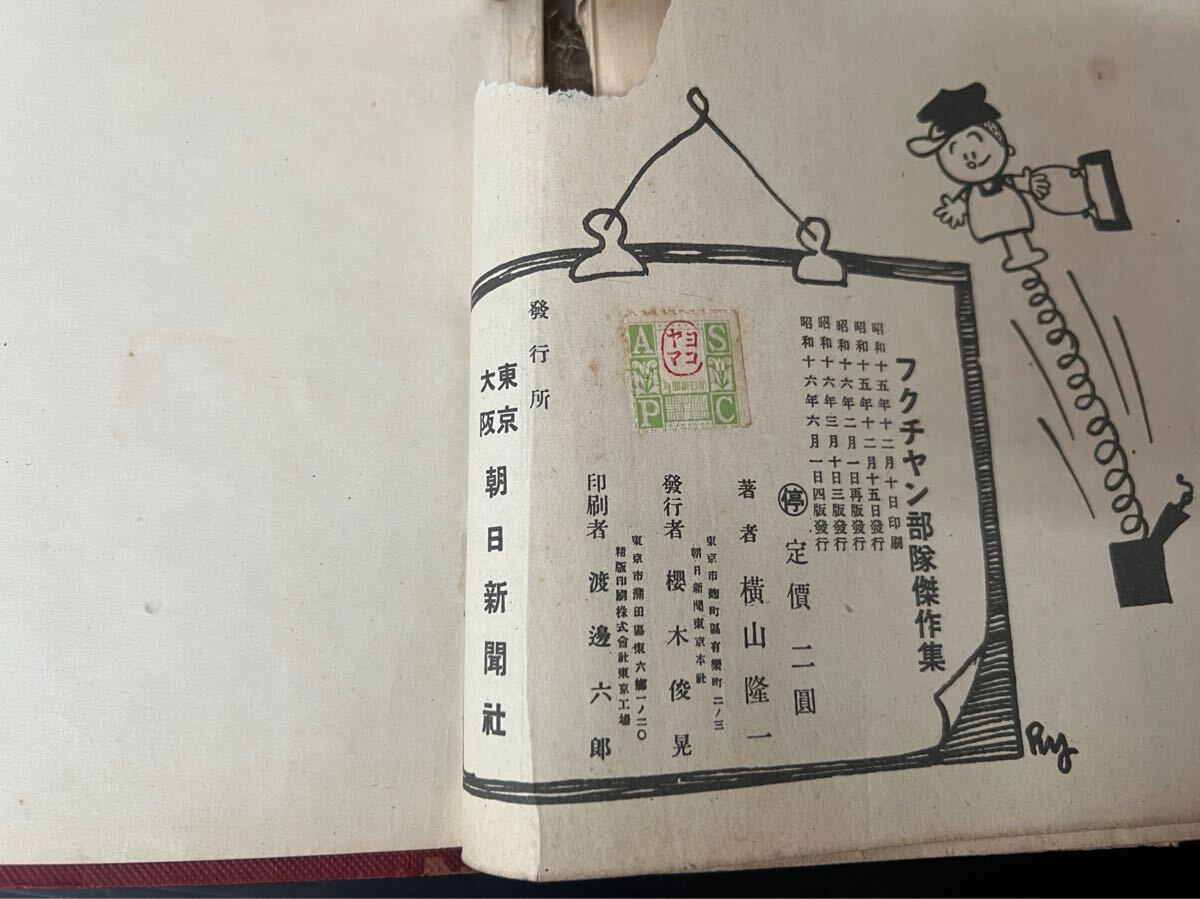 フクチヤン部隊傑作集
昭和十五年十二月十日印刷
昭和十五年十二月十五日發行
昭和十六年二月一日再版發行
昭和十六年三月十日三版發行
昭和十六年六月一日四版發行
停 定價二圓
著者 橫山隆一
東京市麴町區有樂町二ノ三
朝日新聞東京本社
發行者 櫻木俊晃
東京市蒲田區東六鄕一ノ二〇
精版印刷株式會社東京工場
印刷者 渡邊六郞
發行所
東京
大阪
朝日新聞社
A S
ヨコ
ヤマ
P C
Ry